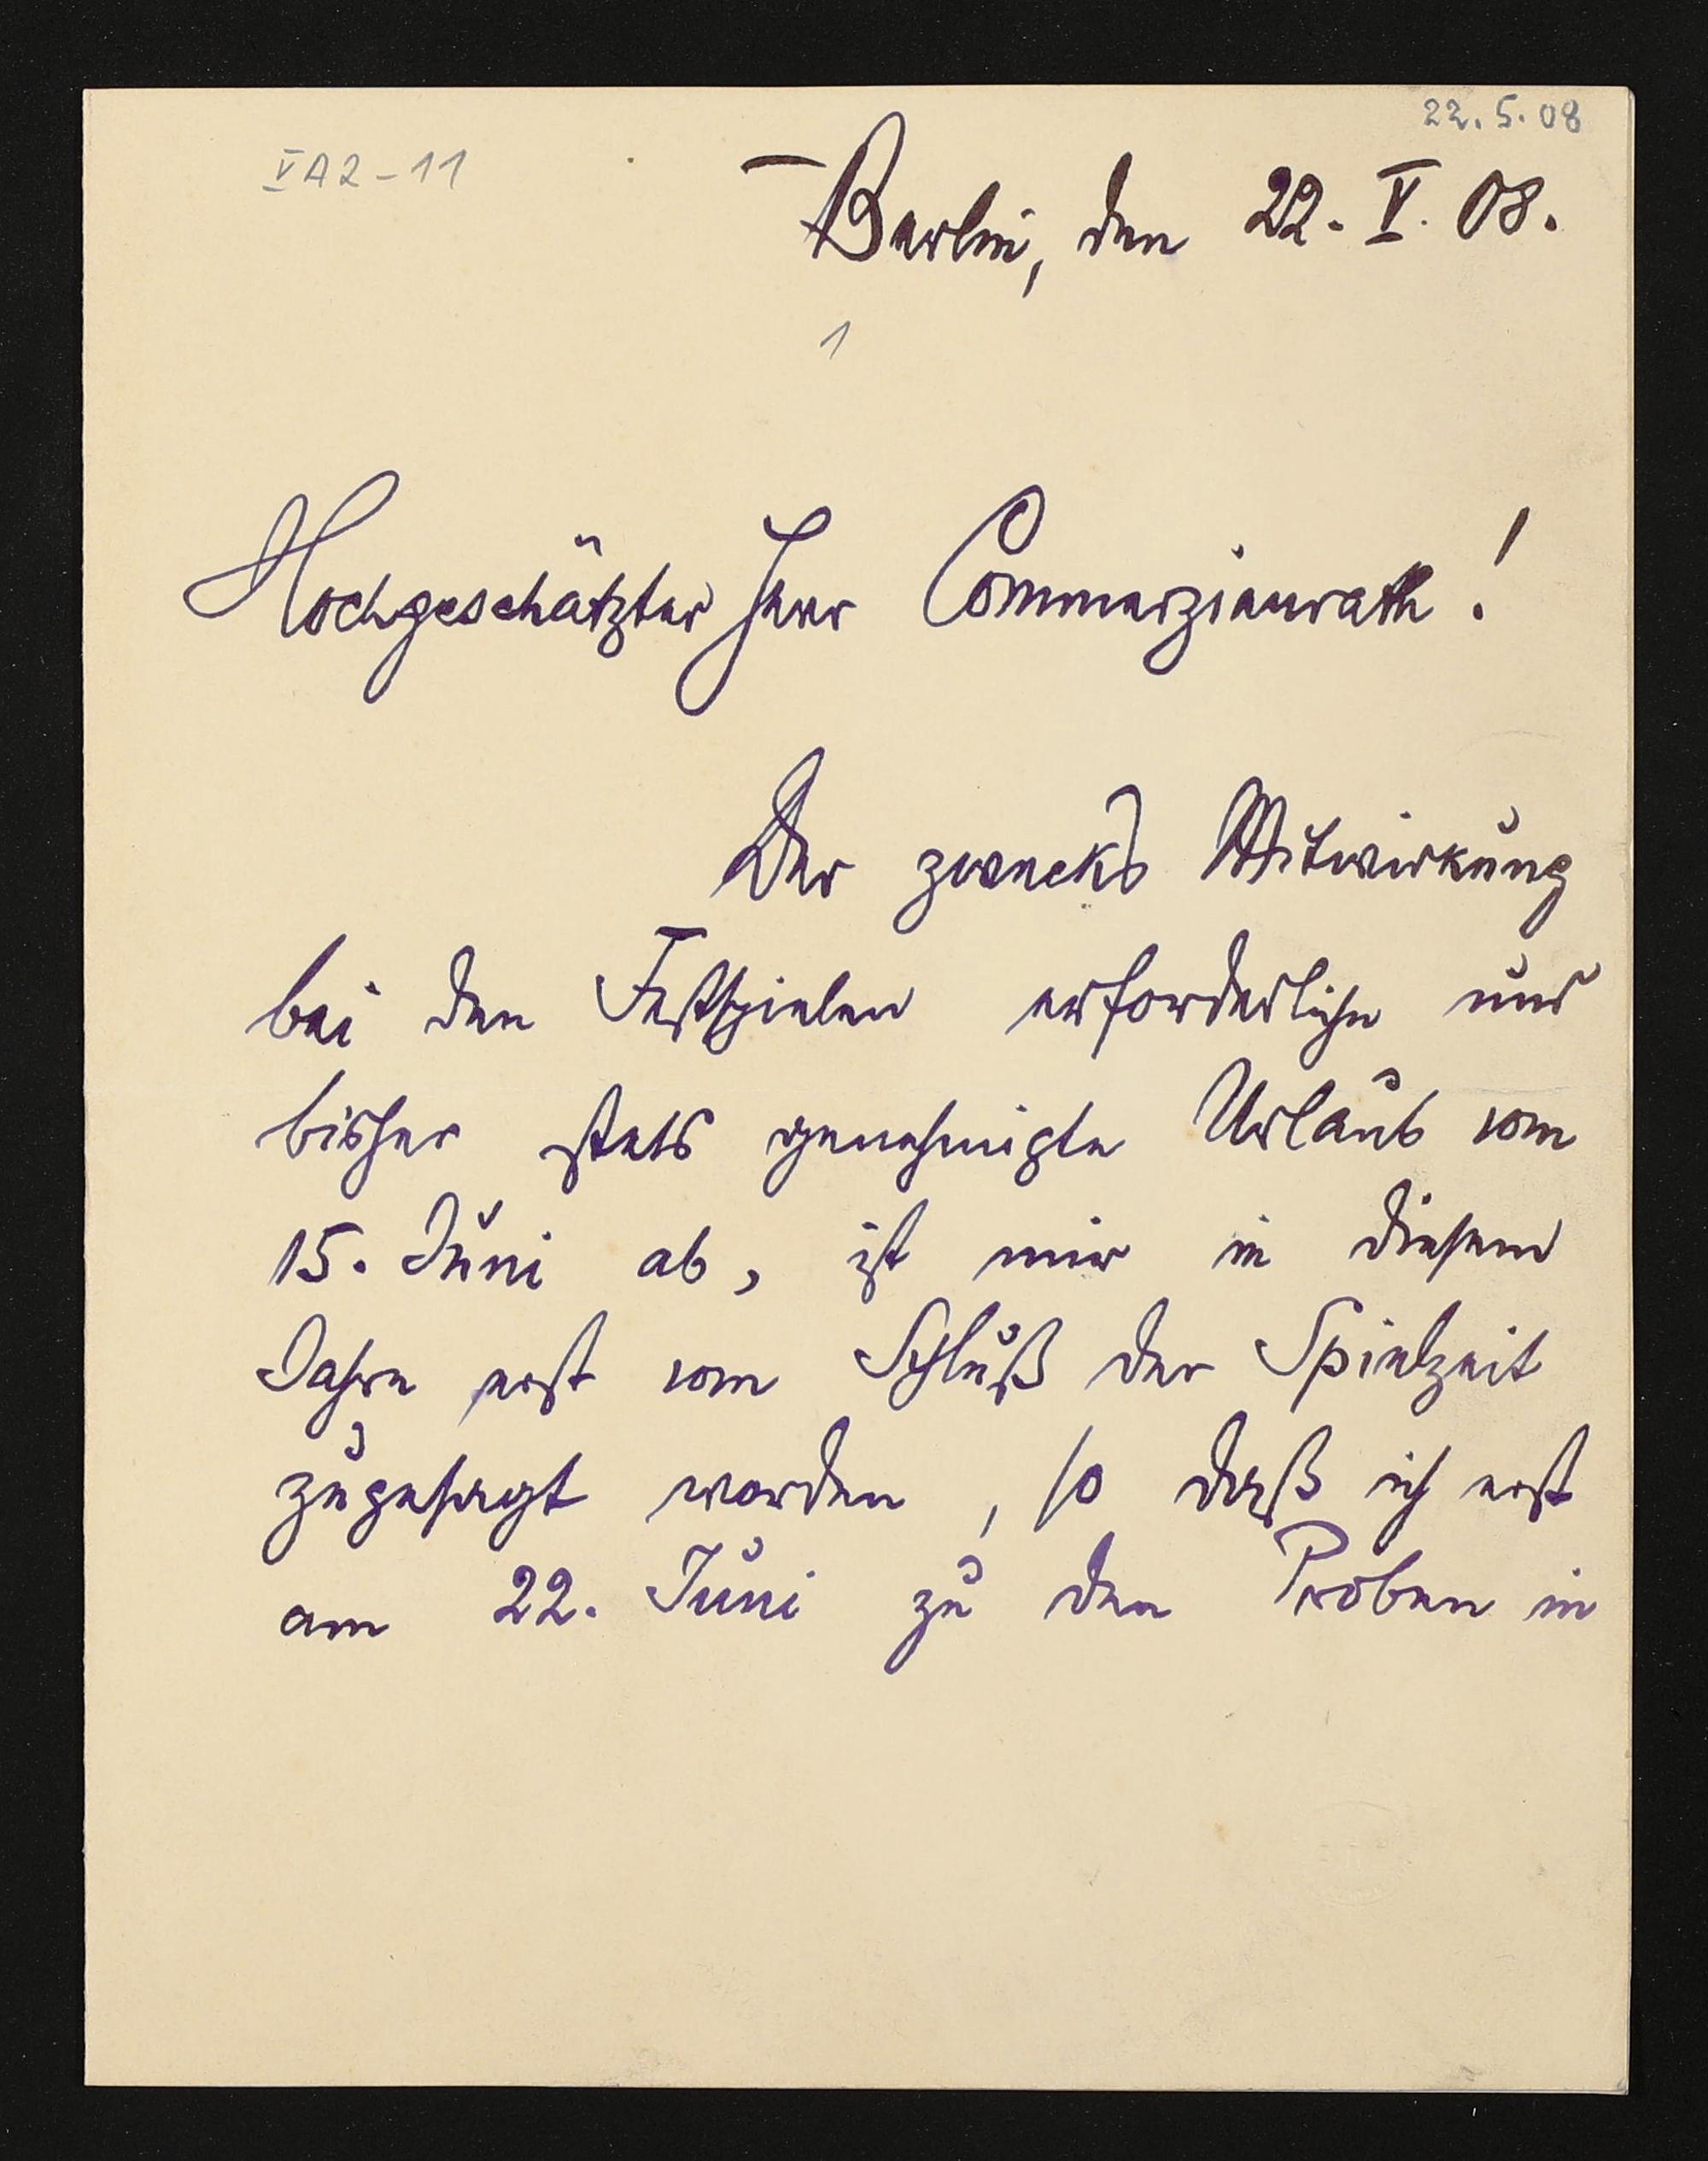 22.5.08
V A 2 - 11
Berlin, den 22. V. 08.
1
Hochgeschätzter Herr Commerzienrath!
Der zwecks Mitwirkung
bei den Festspielen erforderliche und
bisher stets genehmigte Urlaub vom
15. Juni ab, ist mir in diesem
Jahre erst vom Schluß der Spielzeit
zugesagt worden, so daß ich erst
am 22. Juni zu den Proben in